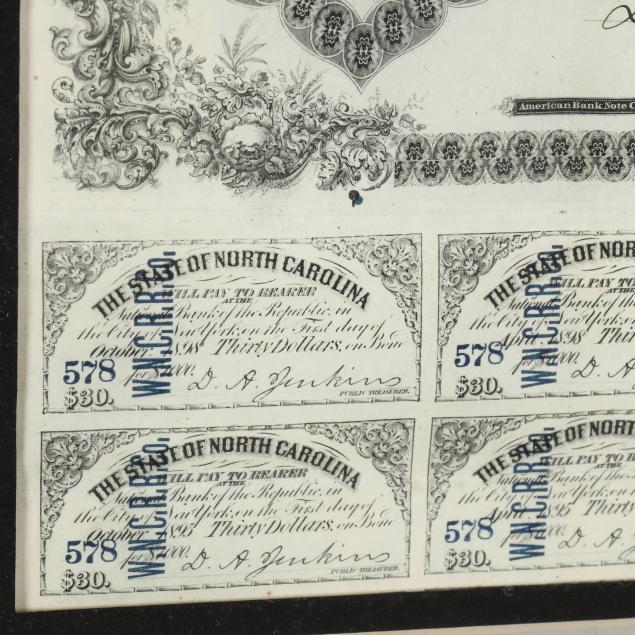 American Bank Note C
THE STATE OF NORTH CAROLINA
WILL PAY TO BEARER
AT THE
National Bank of the Republic, in
the City of New York, on the First day of
October 1898 Thirty Dollars, on Bond
578 for $1000.
W.N.C.R.R.CO.
D. A. Jenkins
PUBLIC TREASURER.
$30.
THE STATE OF NOR
WILL PAY TO
AT THE
National Bank of th
the City of New York, o
April 1898 Thir
578 for $1000.
W.N.C.R.R.CO.
D. A.
$30.
THE STATE OF NORTH CAROLINA
WILL PAY TO BEARER
AT THE
National Bank of the Republic, in
the City of New York, on the First day of
October 1895 Thirty Dollars, on Bond
578 for $1000.
W.N.C.R.R.CO.
D. A. Jenkins
PUBLIC TREASURER.
$30.
THE STATE OF NORT
WILL PAY TO B
AT THE
National Bank of the
the City of New York, on
April 1895 Thirty
578 for $1000.
W.N.C.R.R.CO.
D. A.
$30.